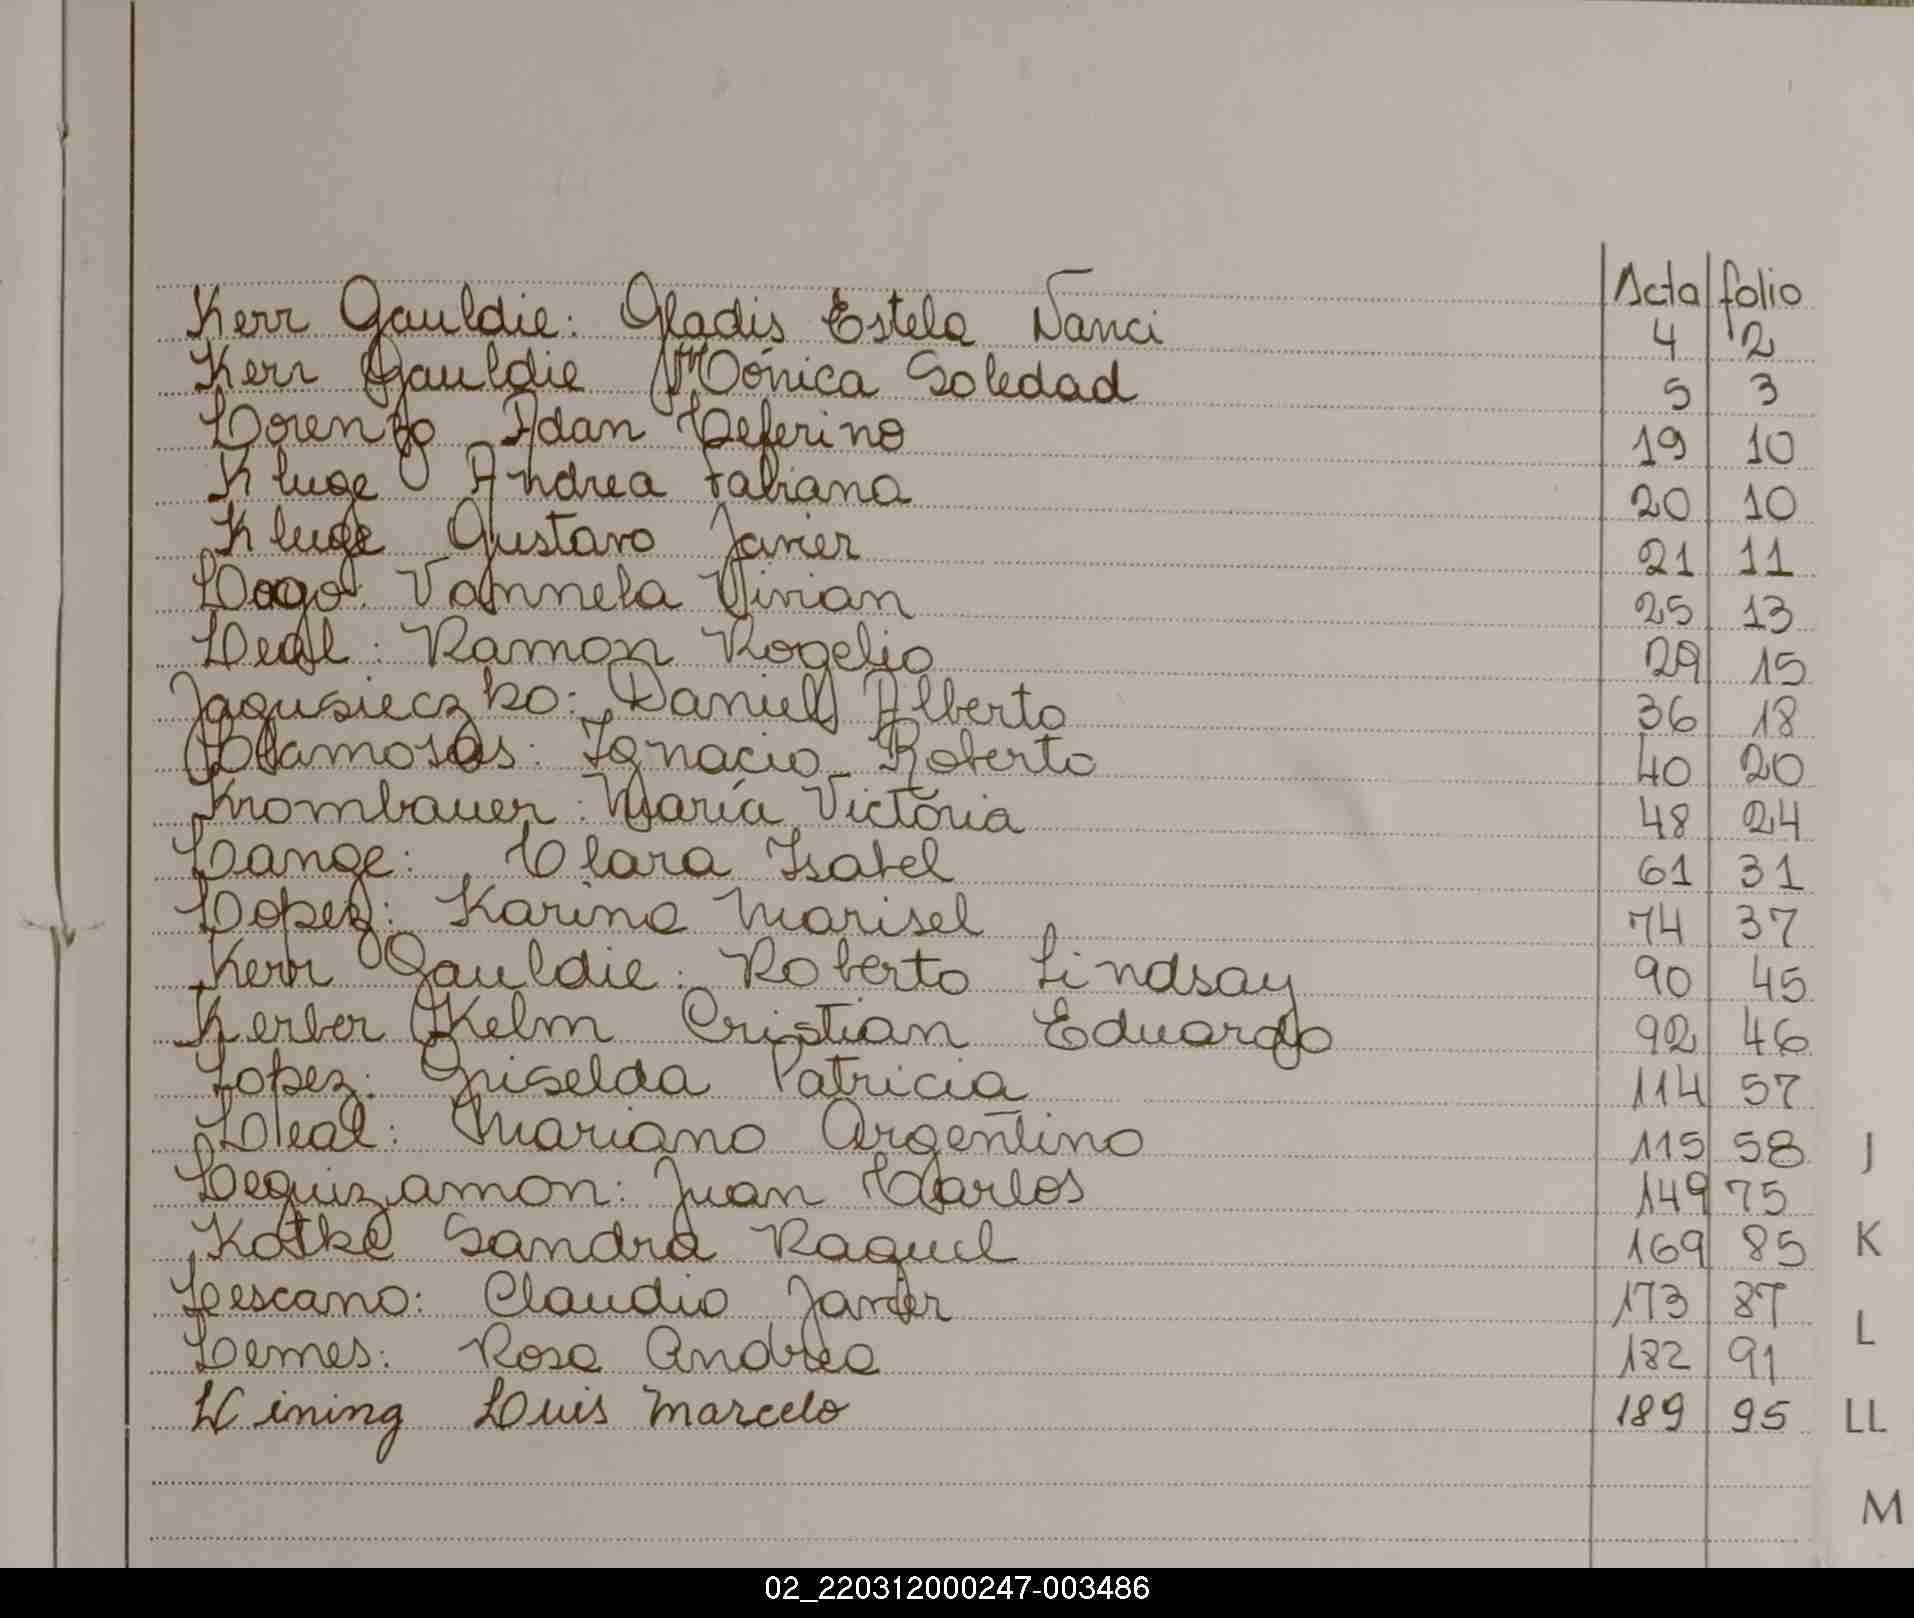 Acta folio
Kerr Gauldie: Gladis Estela Nanci 4 2
Kerr Gauldie Mónica Soledad 5 3
Lorenzo Adan Ceferino 19 10
Kluge Andrea Fabiana 20 10
Kluge Gustavo Javier 21 11
Lago: Vannela Vivian 25 13
Leal: Ramon Rogelio 29 15
Jagusieczko: Daniel Alberto 36 18
Llamosas: Ignacio Roberto 40 20
Krombauer: María Victoria 48 24
Lange: Clara Isabel 61 31
Lopez: Karina Marisel 74 37
Kerr Gauldie: Roberto Lindsay 90 45
Kerber Kelm Cristian Eduardo 92 46
Lopez: Griselda Patricia 114 57
Leal: Mariano Argentino 115 58
J
Leguizamon: Juan Carlos 149 75
Kotke Sandra Raquel 169 85
K
Lescano: Claudio Javier 173 87
L
Lemes: Rosa Andrea 182 91
Luis Marcelo 189 95
LL
M
02_220312000247-003486